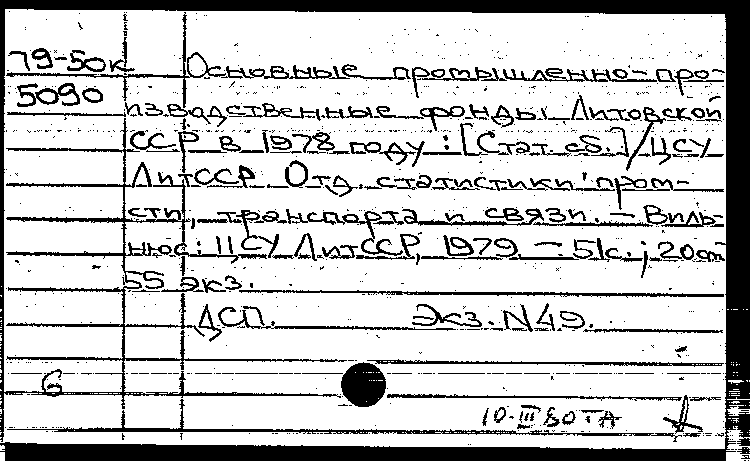 79-50к Основные промышленно-про-
5090 изводственные фонды Литовской
ССР в 1978 году : [Стат. сб.] / ЦСУ
ЛитССР. Отд. статистики пром-
сти, транспорта и связи. - Виль-
нюс : ЦСУ ЛитССР, 1979. - 51с. ; 20см
55 экз.
ДСП. Экз. N49.
6
10.III 80 ТА